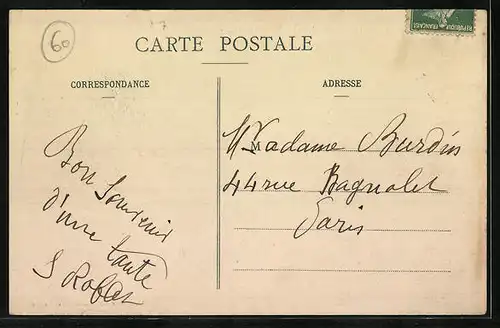 60
CARTE POSTALE
CORRESPONDANCE
ADRESSE
Bon Souvenir
d'une tante
S
M Madame Burdin
44 rue Bagnolet
Paris